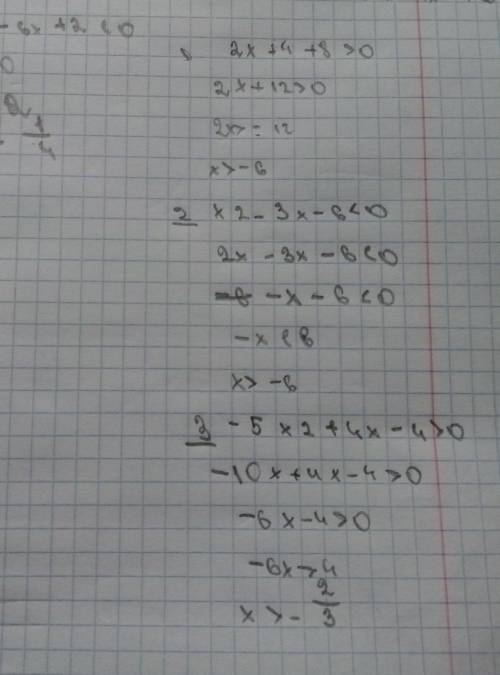 - 6x + 2 < 0
0
1/4
2x + 4 + 8 > 0
2x + 12 > 0
2x > - 12
x > - 6
2 x2 - 3x - 6 < 0
2x - 3x - 6 < 0
- x - 6 < 0
- x < 6
x > - 6
3 - 5x2 + 4x - 4 > 0
- 10x + 4x - 4 > 0
- 6x - 4 > 0
- 6x > 4
x > - 2/3